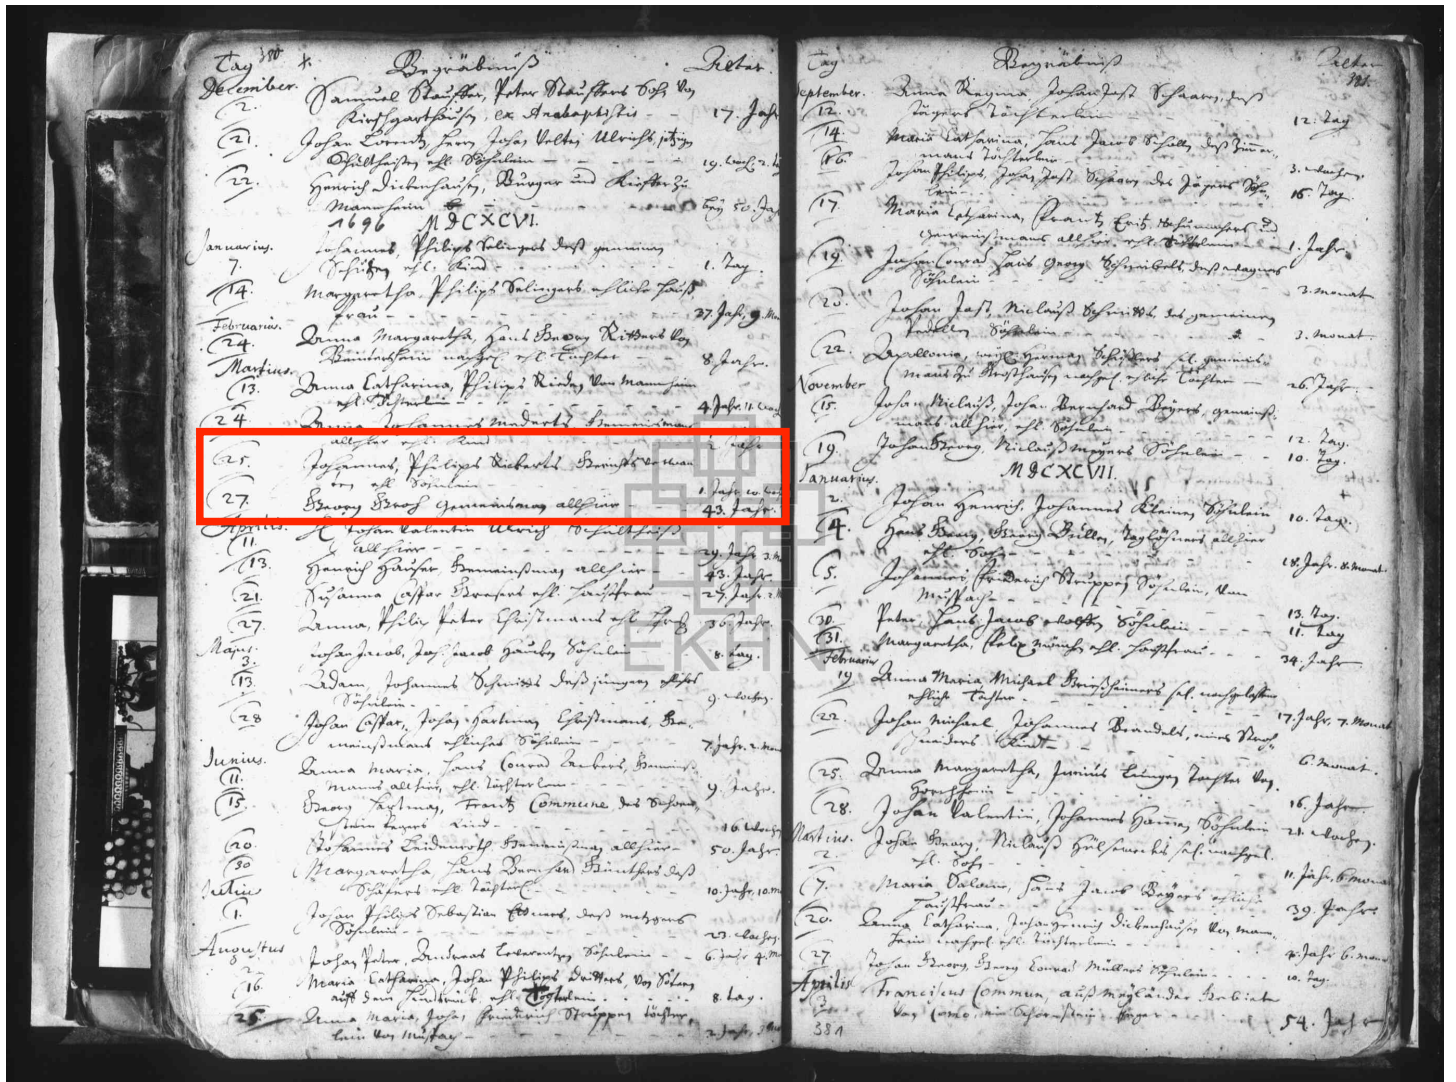 Tag 380 Begräbnuß Alter.
December.
2. Samuel Stauffer, Peter Stauffers Sohn von
Kirschgarthausen, ex Anabaptistis 17. Jahr
21. Johan Lorentz, Herrn Johan Velten Ulrichs, jetzigen
Schultheißen ehl. Söhnlein 19. Woch. 2. Tag
22. Henrich Dickenhausen, Burger und Kieffer zu
Mannheim bey 50. Jahr
1696 MDCXCVI.
Januarius. Johannes, Philips Selingers deß gemeinen
7. Schützen ehl. Kind 1. Tag.
14. Margaretha, Philips Selingers ehliche Hauß
frau 27. Jahr, 9. Mon
Februarius.
24. Anna Margaretha, Hans Georg Ritters von
nachgel. ehl. Tochter 8. Jahr.
Martius.
13. Anna Catharina, Philips Rieden von Mannheim
ehl. Töchterlein 4. Jahr. 11. Woch
24 Anna Johannes Mederts, Gemeinsmans
allhier ehl. Kind 2. Jahr
25. Johannes, Philips Rickerts Gerichtsverwan
ten ehl. Söhnlein 1. Jahr. 10. Woch
27. Georg Groh Gemeinsman allhier 43. Jahr.
Aprilis. H. Johan Valentin Ulrich Schultheiß
11. allhier 29. Jahr 3. M
13. Henrich Hauser, Gemeinsman allhier 43. Jahr
21. Susanna Caspar ehl. Haußfrau 27. Jahr. 2. M
27. Anna, Philip Peter Christmans ehl. 36. Jahr.
Majus.
3. Johan Jacob, Joh. Jacob Söhnlein 8. Tag.
13. Adam, Johannes Schmitts deß jungen
Söhnlein 9. Wochen.
28 Johan Caspar, Johan Hartman Christmans, Ge-
meinsmans ehliches Söhnlein 7. Jahr. 2. Mon
Junius.
11. Anna Maria, Hans Conrad Gemeins-
mans allhier, ehl. Töchterlein 9. Jahr.
15. Georg Hartman, Frantz Commune des Schorn
Kind 16. Wochen
20. Johannes Gemeinsman allhier 50. Jahr.
30 Margaretha, Hans Bernhard Günthers deß
Schäfers ehl. Töchterl. 10. Jahr. 10. M
Julius
1. Johan Philips Sebastian deß Metzgers
Söhnlein 23. Wochen.
Augustus
2. Johan Peter, Andreas Söhnlein 6. Jahr 4. M
16. Maria Catharina, Johan Philips
auff dem ehl. Tochterlein 8. Tag.
25. Anna Maria, Johan Friderich Struppen Töchter-
lein von Mußbach 2. Jahr, 3. Mon
Tag Begräbnuß Alter
381.
September. Anna Regina Johan Jost Schaaren, deß
12. Jägers Töchterlein 12. Tag
14. Maria Catharina, Hans Jacob Schollen, deß Zimmer-
mans Töchterlein 3. Wochen
16. Johan Philips, Johan Jost Schaaren des Jägers Söhn-
lein 16. Tag.
17. Maria Catharina, Frantz Schumachers und
Gemeinsmans allhier, ehl. 1. Jahr.
19 Johan Conrad Hans Georg deß Wagners
Söhnlein 3. Monat
20. Johan Jost, Niclauß Schmitts, des gemeinen
Söhnlein 3. Monat.
22. Apollonia, weyl. Herman sel. gemeins-
mans zu nachgel. ehliche Tochter 26. Jahr.
November
15. Johan Niclauß, Johan Bernhard Beyers, gemeins-
mans allhier, ehl. Söhnlein 12. Tag.
19. Johan Georg, Niclauß Meyers Söhnlein 10. Tag.
MDCXCVII.
Januarius.
2. Johan Henrich, Johannes Kleinen Söhnlein 10. Tag.
4. Hans Georg, Georg Müllers, Taglöhners allhier
ehl. Sohn 18. Jahr. 8. Monat
5. Johannes, Friderich Struppen Söhnlein, von
Mußbach 13. Tag.
30. Peter, Hans Jacob Wolffen Söhnlein 11. Tag
31. Margaretha, ehl. Haußfrau 34. Jahr
Februarius
19 Anna Maria Michael sel. nachgelaßene
ehliche Tochter 17. Jahr. 7. Monat
22. Johan Michael, Johannes Brandels, eines Stroh-
schneiders Kind 6. Monat.
25. Anna Margaretha, Tochter von
16. Jahr.
28. Johan Valentin, Johannes Söhnlein 21. Wochen.
Martius.
2. Johan Georg, Niclauß sel. nachgel.
ehl. Sohn 11. Jahr, 6. Monat
7. Maria Salome, Hans Jacob Beyers ehliche
Haußfrau 39. Jahr.
20. Anna Catharina, Johan Henrich Dickenhausen von Mann-
heim nachgel. ehl. Töchterlein 4. Jahr 6. Monat
27. Johan Georg, Georg Conrad Müllers Söhnlein 10. Tag.
Aprilis
3. Franciscus Commun, auß Meyländer Gebiete
von Como, ein Schornsteinfeger 54. Jahr
381
EKHN